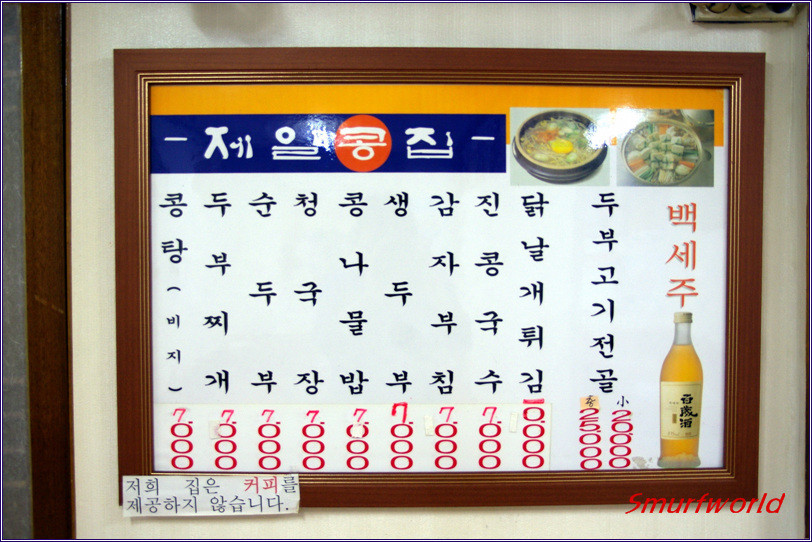 - 제일콩집 -
콩탕(비지)
7.000
두부찌개
7.000
순두부
7.000
청국장
7.000
콩나물밥
7.000
생두부
7.000
감자부침
7.000
진콩국수
7.000
닭날개튀김
두부고기전골
중 25.000
小 20.000
백세주
百歲酒
저희 집은 커피를
제공하지 않습니다.
Smurfworld